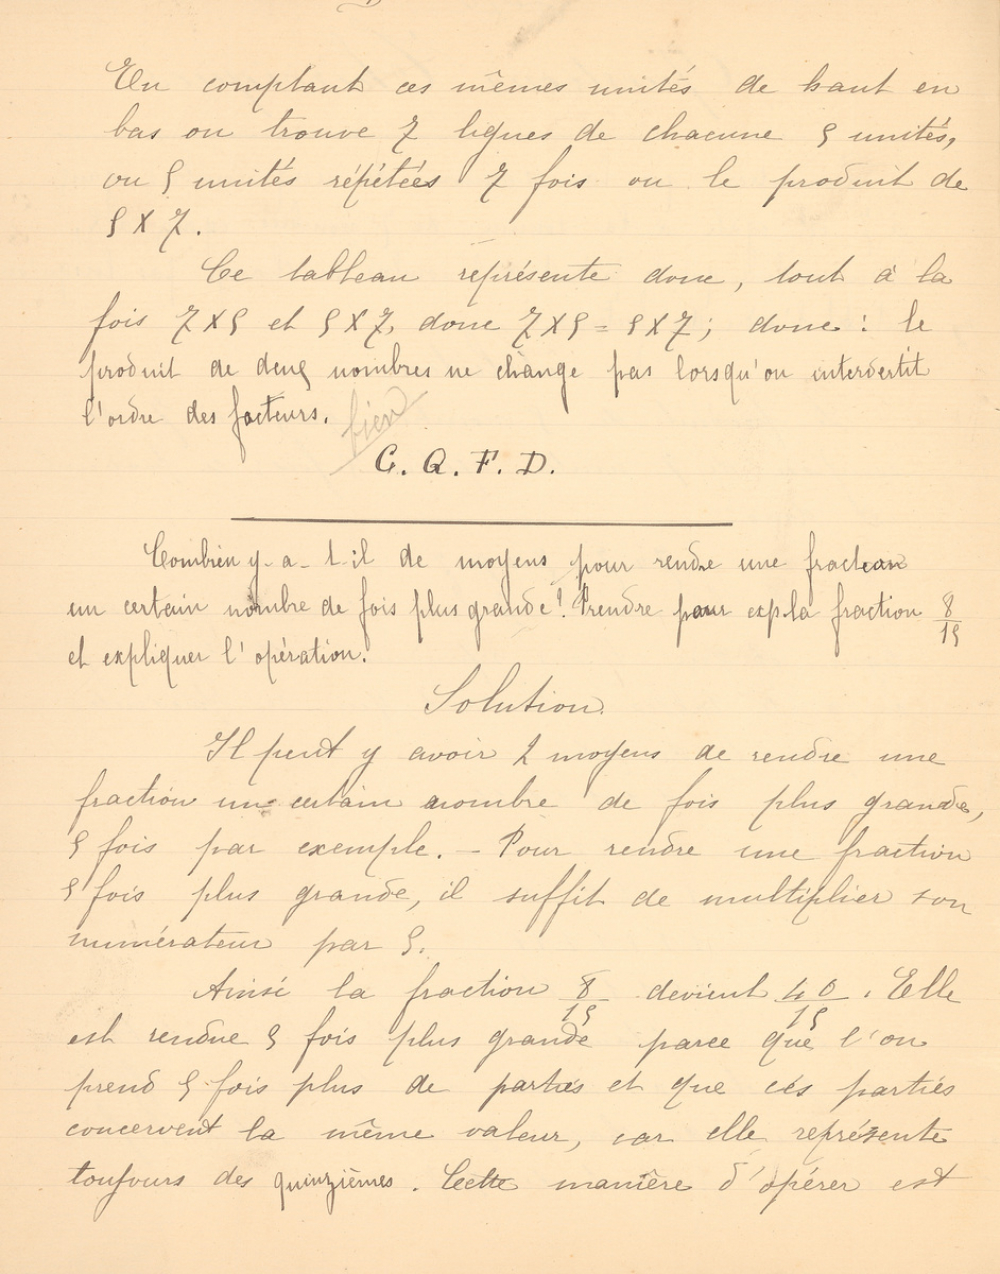 En comptant ces mêmes unités de haut en
bas on trouve 7 lignes de chacune 5 unités,
ou 5 unités répétées 7 fois ou le produit de
5 X 7.
Ce tableau représente donc, tout à la
fois 7 X 5 et 5 X 7, donc 7 X 5 = 5 X 7; donc : le
produit de deux nombres ne change pas lorsqu'on interdertit
l'ordre des facteurs.
bien
C. Q. F. D.
Combien y-a-t-il de moyens pour rendre une fraction
un certain nombre de fois plus grande? Prendre pour exp. la fraction 8/15
et expliquer l'opération.
Solution.
Il peut y avoir 2 moyens de rendre une
fraction un certain nombre de fois plus grande,
5 fois par exemple. - Pour rendre une fraction
5 fois plus grande, il suffit de multiplier son
numérateur par 5.
Ainsi la fraction 8/15 devient 40/15. Elle
est rendue 5 fois plus grande parce que l'on
prend 5 fois plus de parties et que ces parties
concervent la même valeur, car elle représente
toujours des quinzièmes. Cette manière d'opérer est